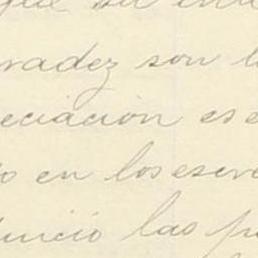 que su en
radez son l
eciación es e
o en los escri
unció las p